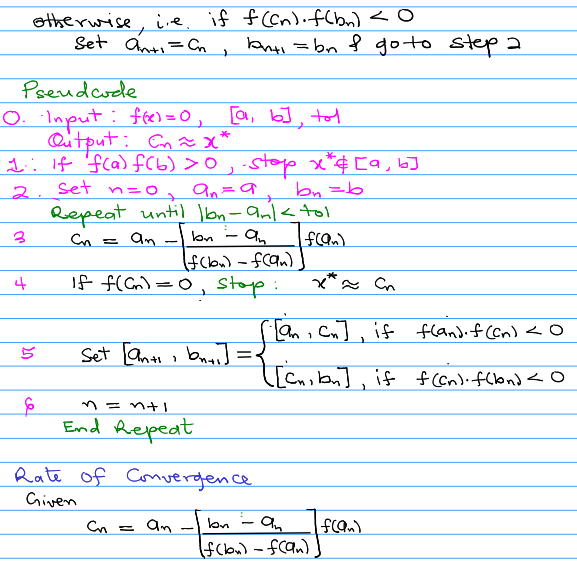 otherwise, i.e. if f(cn).f(bn) < 0
Set an+1 = cn , bn+1 = bn & go to step 2
Pseudcode
0. Input : f(x)=0, [a, b], tol
Output : cn ≈ x*
1. : if f(a) f(b) > 0 , stop x* ∉ [a, b]
2. Set n=0 , an=a , bn=b
Repeat until |bn - an| < tol
3 cn = an - [bn - an / f(bn) - f(an)] f(an)
4 If f(cn) = 0 , stop : x* ≈ cn
5 Set [an+1 , bn+1] = { [an , cn] , if f(an).f(cn) < 0
[cn, bn] , if f(cn).f(bn) < 0
6 n = n+1
End Repeat
Rate of Convergence
Given
cn = an - [bn - an / f(bn) - f(an)] f(an)